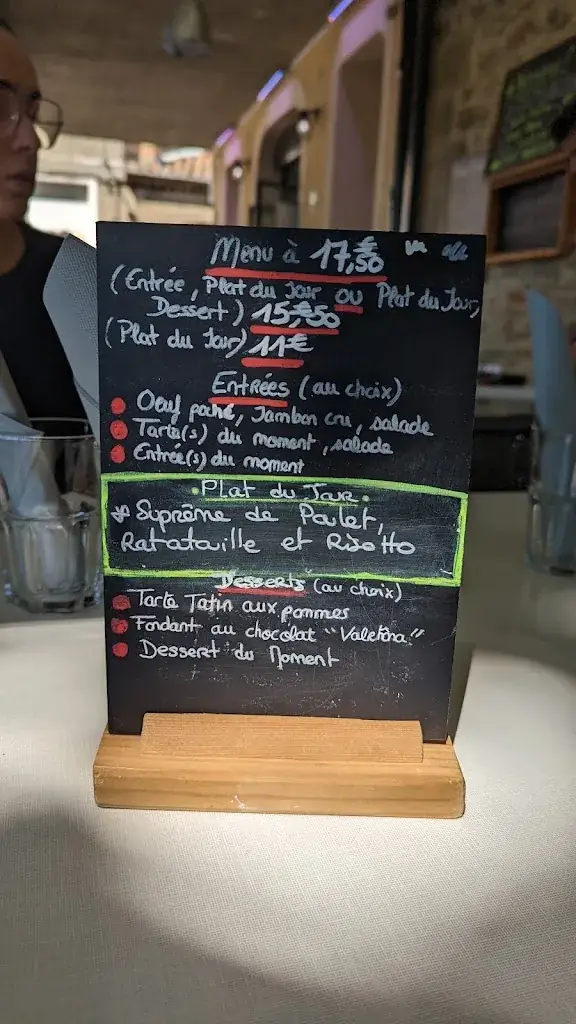 Menu à 17,50€
(Entrée, Plat du Jour ou Plat du Jour,
Dessert) 15,50€
(Plat du Jour) 11€
Entrées (au choix)
Oeuf poché, Jambon cru, salade
Tarte(s) du moment, salade
Entrée(s) du moment
Plat du Jour
Suprême de Poulet,
Ratatouille et Risotto
Desserts (au choix)
Tarte Tatin aux pommes
Fondant au chocolat "Valrhona"
Dessert du Moment